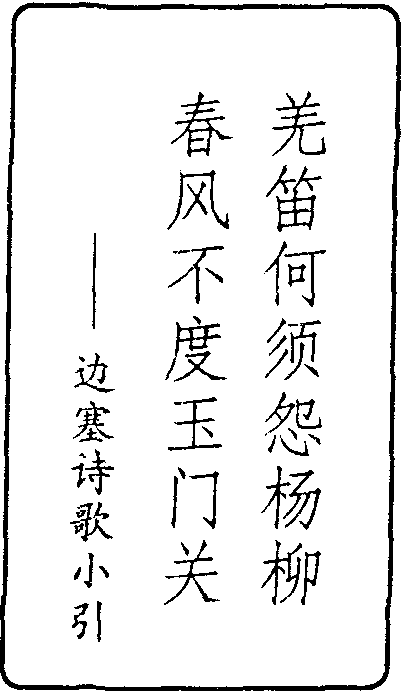 羌笛何须怨杨柳
春风不度玉门关
——边塞诗歌小引